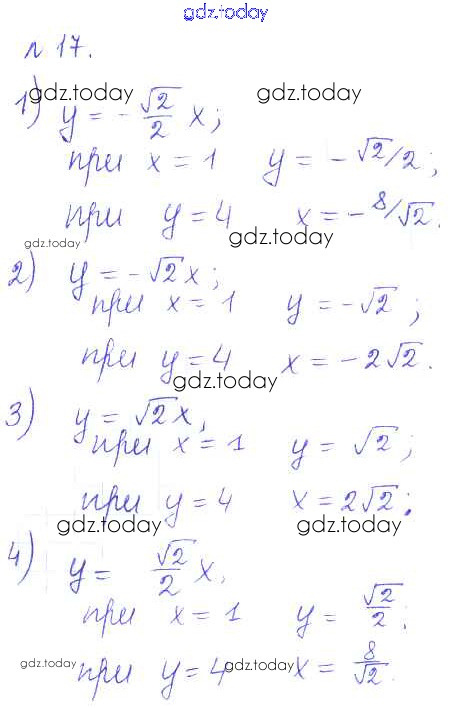 gdz.today
№ 17.
gdz.today gdz.today
1) y = -√2/2 x;
при x = 1 y = -√2/2;
при y = 4 x = -8/√2.
gdz.today gdz.today
2) y = -√2x;
при x = 1 y = -√2;
при y = 4 x = -2√2.
gdz.today
3) y = √2x,
при x = 1 y = √2;
при y = 4 x = 2√2;
gdz.today gdz.today
4) y = √2/2 x,
при x = 1 y = √2/2;
при y = 4 x = 8/√2.
gdz.today gdz.today gdz.today